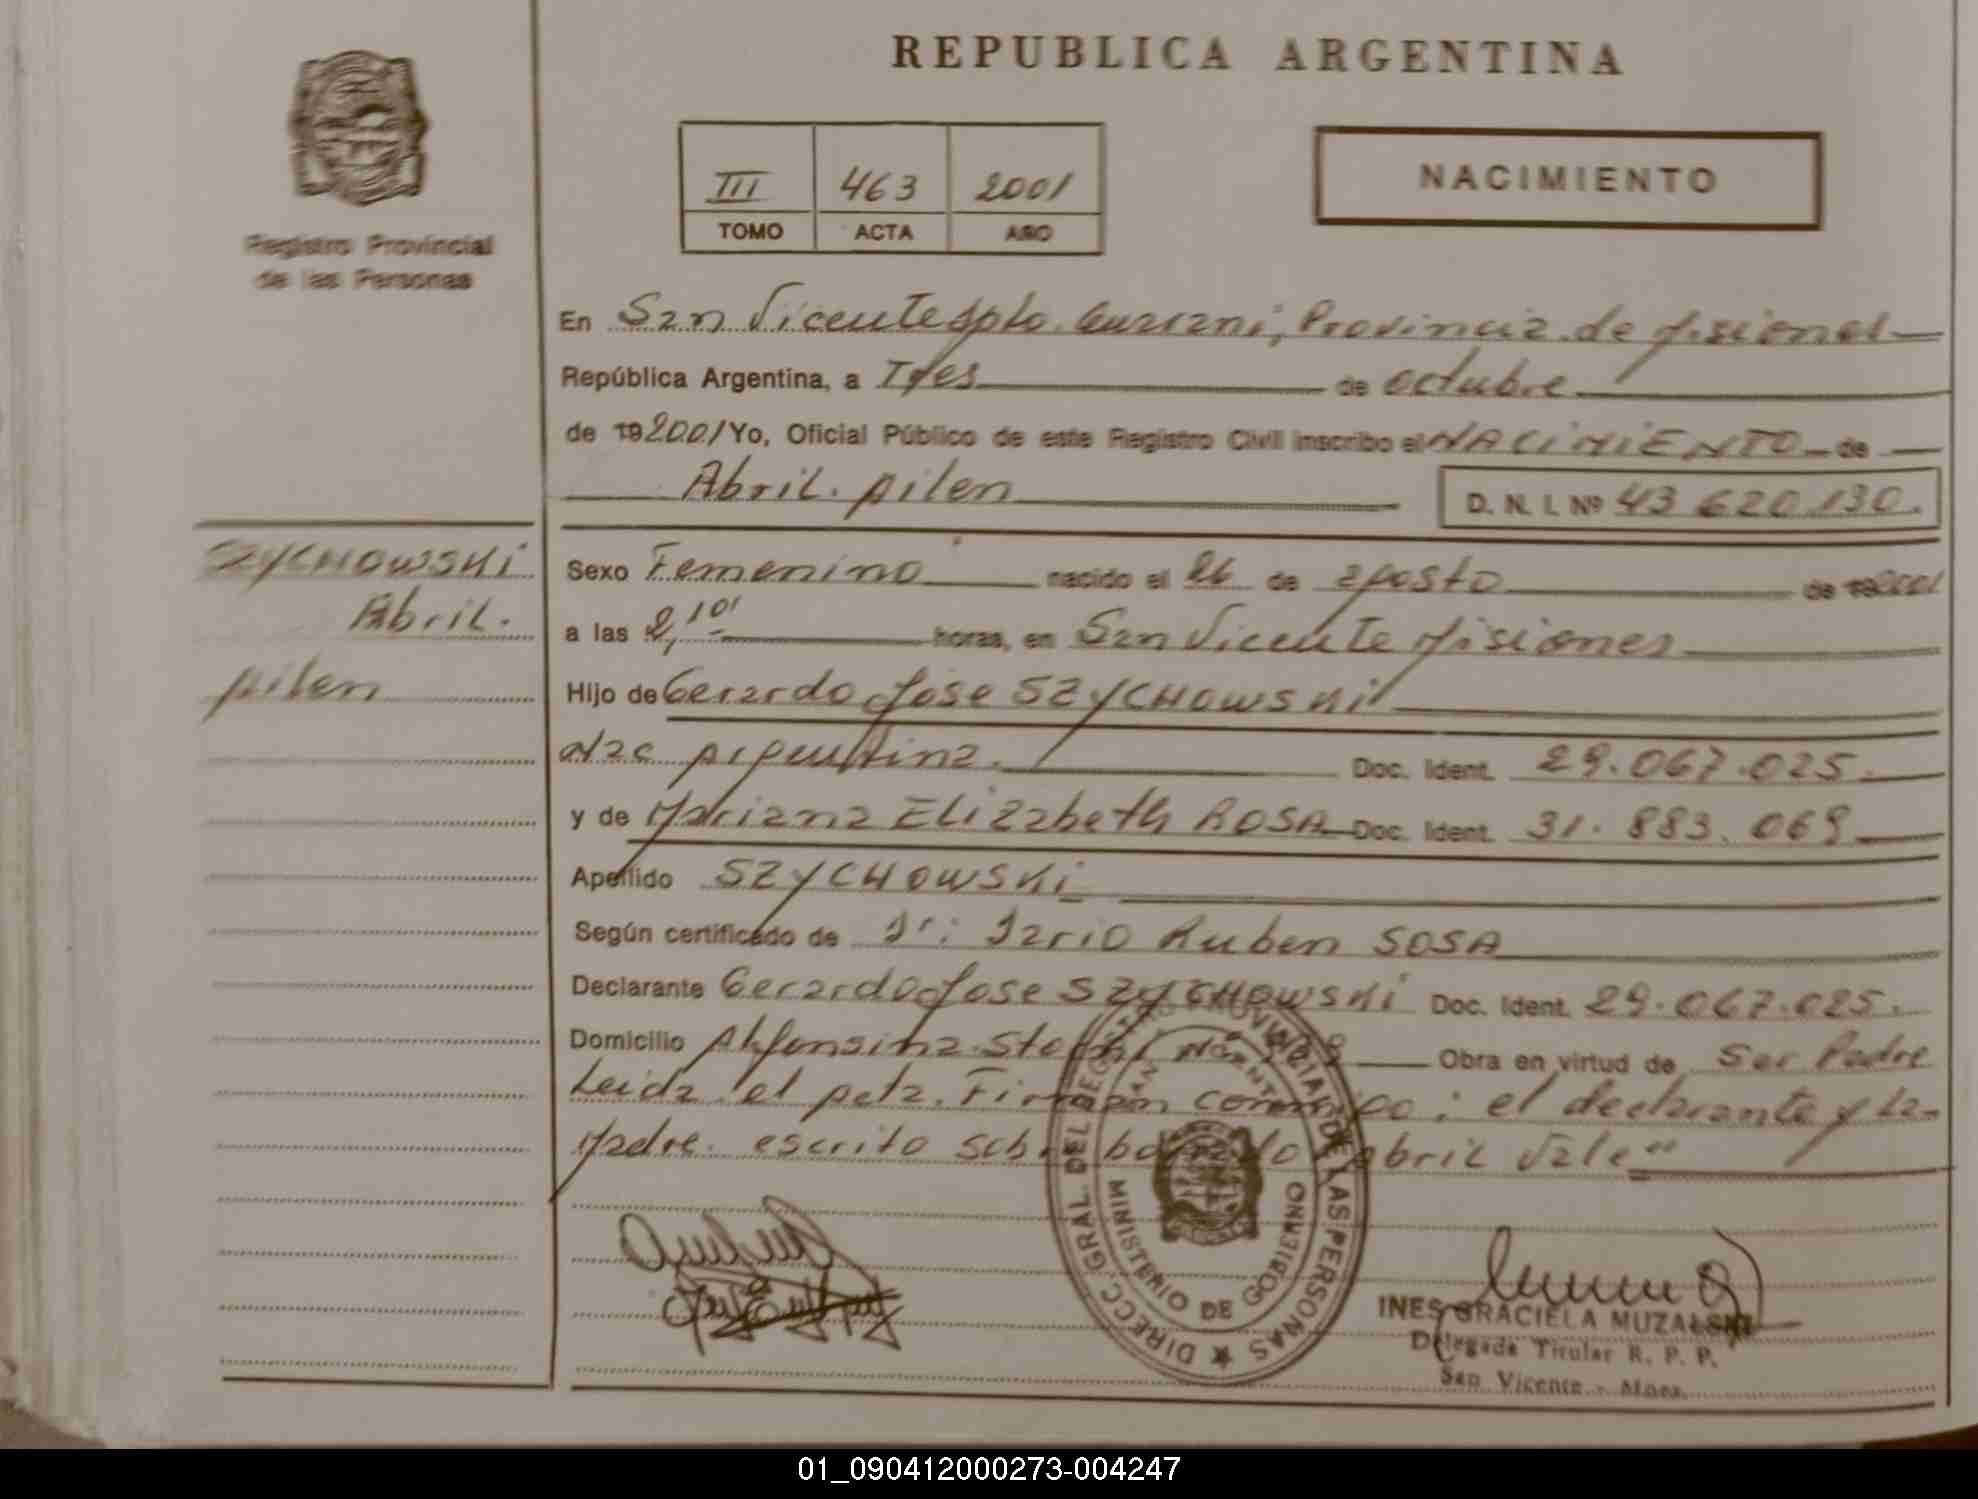 REPUBLICA ARGENTINA
III 463 2001
TOMO ACTA AÑO
NACIMIENTO
Registro Provincial
de las Personas
En San Vicente Dpto. Guarani, Provincia de Misiones
República Argentina, a Tres de octubre
de 192001 Yo, Oficial Público de este Registro Civil inscribo el NACIMIENTO de
Abril. Ailen
D. N. I. Nº 43 620 130.
SZYCHOWSKI
Abril.
Ailen
Sexo Femenino nacido el 26 de agosto de 192001
a las 2,10' horas, en San Vicente Misiones
Hijo de Gerardo Jose SZYCHOWSKI
Nac Argentina. Doc. Ident. 29.067.025.
y de Mariana Elizabeth ROSA Doc. Ident. 31.883.069
Apellido SZYCHOWSKI
Según certificado de Dr: Dario Ruben SOSA
Declarante Gerardo Jose SZYCHOWSKI Doc. Ident. 29.067.025.
Domicilio Alfonsina Storni Nº Obra en virtud de Ser Padre
Leida el Acta. Firman conmigo: el declarante y la
Madre. escrito sobre borrado Abril Vale"
DIRECC. GRAL. DEL REGISTRO PROVINCIAL DE LAS PERSONAS
MINISTERIO DE GOBIERNO
INES GRACIELA MUZALSKI
Delegada Titular R. P. P.
San Vicente - Mnes.
01_090412000273-004247